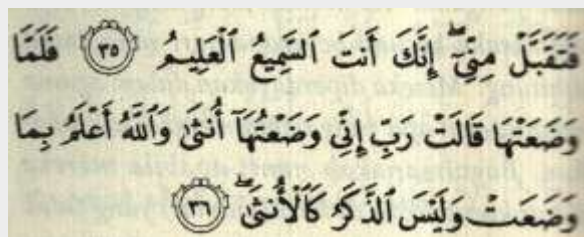 فَتَقَبَّلْ مِنِّيٓۖ إِنَّكَ أَنتَ ٱلسَّمِيعُ ٱلْعَلِيمُ ٣٥ فَلَمَّا
وَضَعَتْهَا قَالَتْ رَبِّ إِنِّي وَضَعْتُهَآ أُنثَىٰ وَٱللَّهُ أَعْلَمُ بِمَا
وَضَعَتْ وَلَيْسَ ٱلذَّكَرُ كَٱلْأُنثَىٰۖ ٣٦